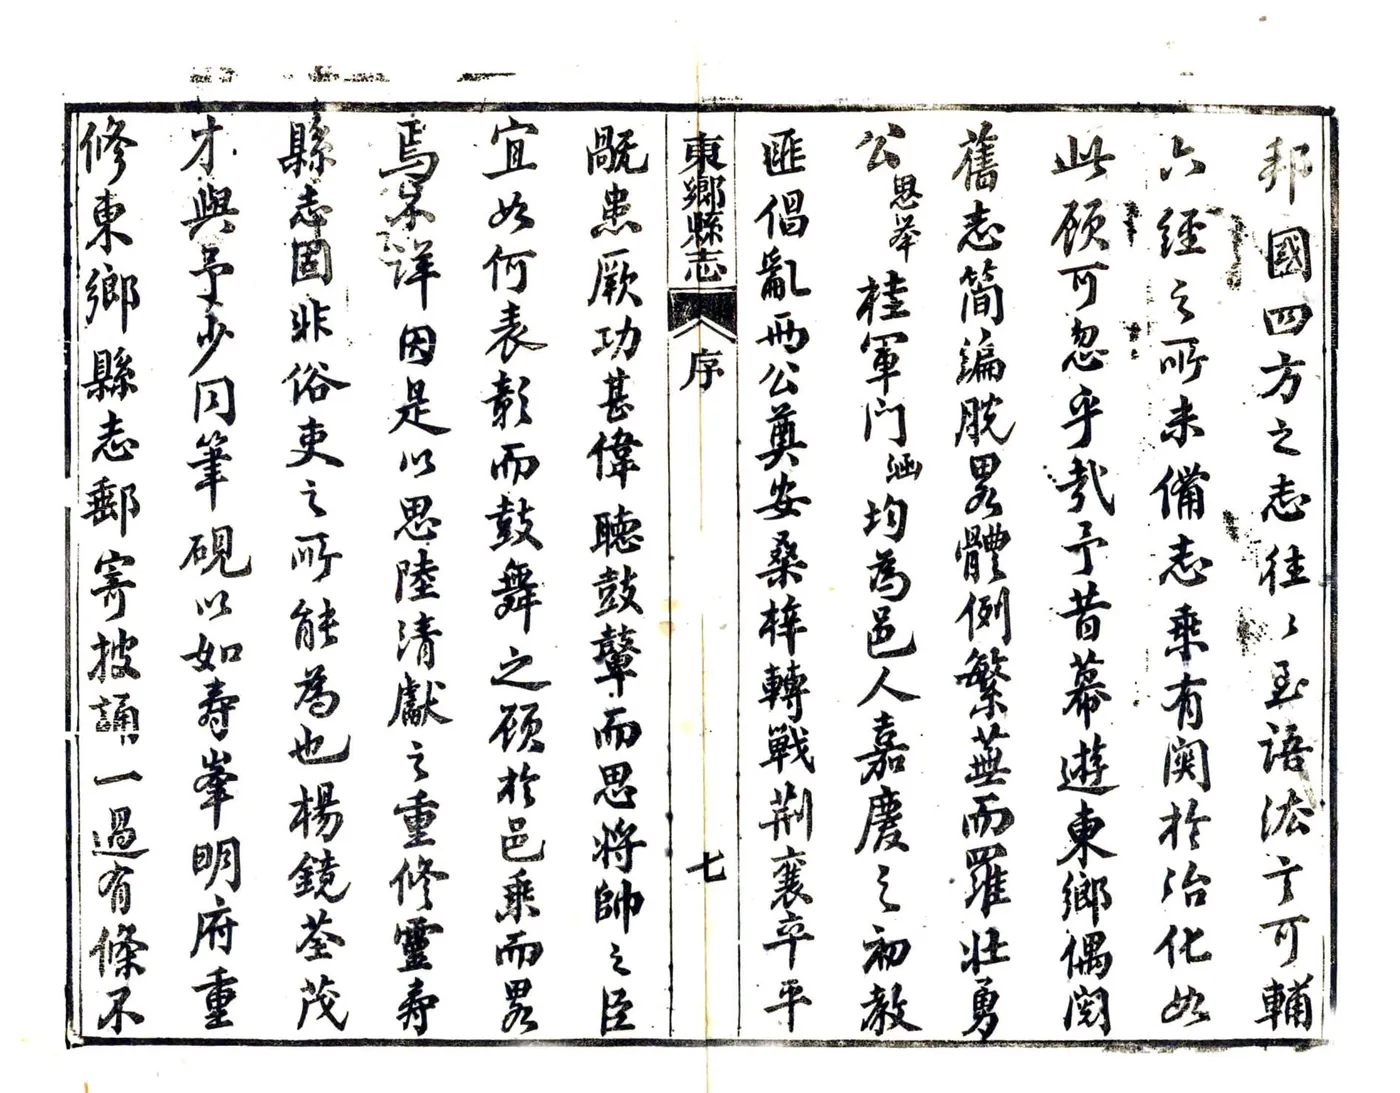 邦國四方之志往〻玉語法言可輔
六經之所未備志乘有関於治化如
此顧可忽乎哉予昔幕遊東鄉偶閱
舊志簡編脫畧體例繁蕪而羅壯勇
公思举桂軍門涵均為邑人嘉慶之初教
匪倡亂两公奠安桑梓轉戰荆襄卒平
東鄉縣志
序
七
厥患厥功甚偉聽鼓鼙而思將帥之臣
宜如何表彰而鼓舞之顧於邑乘而畧
焉不詳因是以思陸清獻之重修靈寿
縣志固非俗吏之所能為也楊鏡荃茂
才與予少同筆硯以如寿峯明府重
修東鄉縣志郵寄披誦一過有條不